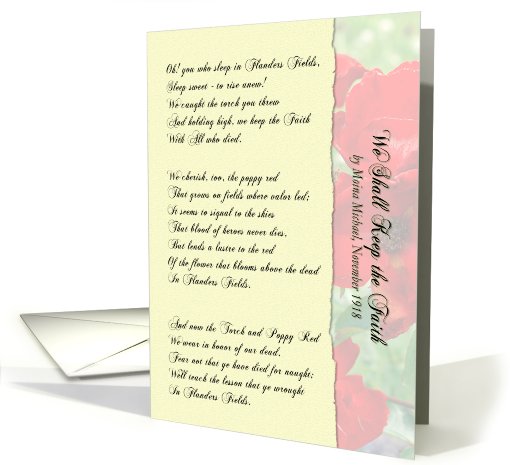 Oh! you who sleep in Flanders Fields,
Sleep sweet - to rise anew!
We caught the torch you threw
And holding high, we keep the Faith
With All who died.
We cherish, too, the poppy red
That grows on fields where valor led;
It seems to signal to the skies
That blood of heroes never dies,
But lends a lustre to the red
Of the flower that blooms above the dead
In Flanders Fields.
And now the Torch and Poppy Red
We wear in honor of our dead.
Fear not that ye have died for naught;
We'll teach the lesson that ye wrought
In Flanders Fields.
We Shall Keep the Faith
by Moina Michael, November 1918